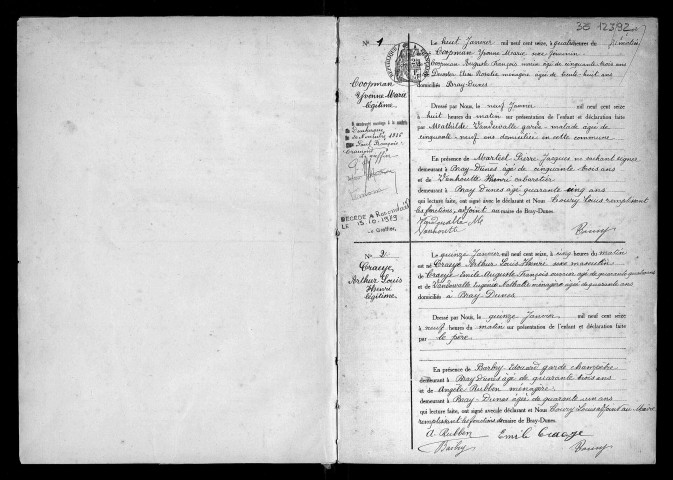 325 12392
N° 1
Coopman
Yvonne Marie
Légitime
Le huit Janvier mil neuf cent seize, à quatre heures du
Coopman Yvonne Marie sexe féminin
Coopman Auguste François marin âgé de cinquante trois ans
Rosalie ménagère âgée de trente huit ans
domiciliés Bray-Dunes
Dressé par Nous, le neuf Janvier mil neuf cent seize
à huit heures du matin sur présentation de l'enfant et déclaration faite
par Mathilde Vandewalle garde-malade âgée de
cinquante neuf ans domiciliée en cette commune
En présence de Marteel Pierre Jacques ne sachant signer
demeurant à Bray-Dunes âgé de cinquante trois ans
et de Vanhoutte Henri cabaretier
demeurant à Bray Dunes âgé quarante cinq ans
qui lecture faite, ont signé avec le déclarant et Nous Louis remplissant
les fonctions, adjoint au maire de Bray-Dunes.
Vandewalle M.
Vanhoutte
Dunkerque
Novembre 1935
DÉCÉDÉ A Rosendaël
LE 15.10.1989
Le Greffier,
N° 2
Craeye
Arthur Louis
Henri
Légitime.
Le quinze Janvier mil neuf cent seize, à cinq heures du matin
est né Craeye Arthur Louis Henri sexe masculin
de Craeye Emile Auguste François ouvrier âgé de quarante
et de Vandewalle Eugénie Nathalie ménagère âgée de quarante ans
domiciliés à Bray-Dunes
Dressé par Nous, le quinze Janvier mil neuf cent seize
à neuf heures du matin sur présentation de l'enfant et déclaration faite
par le père.
En présence de Barbry Edouard garde champêtre
demeurant à Bray Dunes âgé de quarante trois ans
et de Angèle Rubben ménagère
demeurant à Bray-Dunes âgée de quarante un ans
qui lecture faite, ont signé avec le déclarant et Nous Louis adjoint au Maire
remplissant les fonctions de maire de Bray-Dunes.
A. Rubben Emile Craeye
Barbry